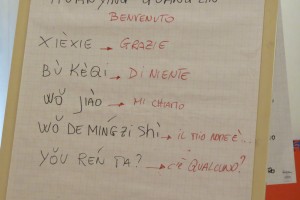 HUANYING GUANGLIN
BENVENUTO
XIÈXIE → GRAZIE
BÙ KÈQI → DI NIENTE
WǑ JIÀO → MI CHIAMO
WǑ DE MÍNGZI SHÌ → IL MIO NOME È...
YǑU RÉN TA? → C'È QUALCUNO?